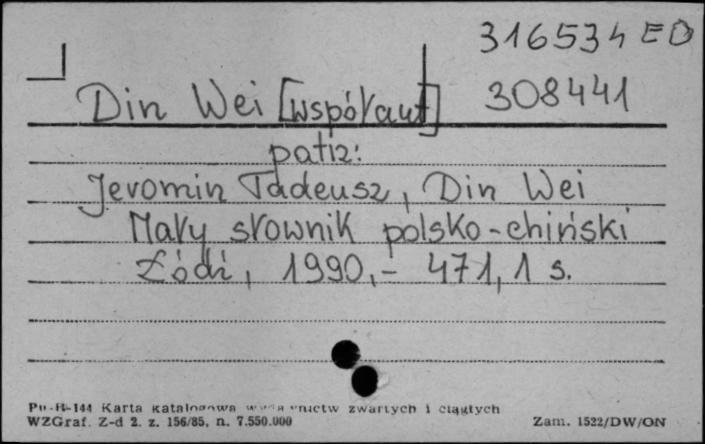 316534 ED
Din Wei [współaut] 308441
patrz:
Jeromin Tadeusz, Din Wei
Mały słownik polsko-chiński
Łódź, 1990,- 471,1 s.
Pu-B-144 Karta katalogowa wydawnictw zwartych i ciągłych
WZGraf. Z-d 2. z. 156/85, n. 7.550.000 Zam. 1522/DW/ON